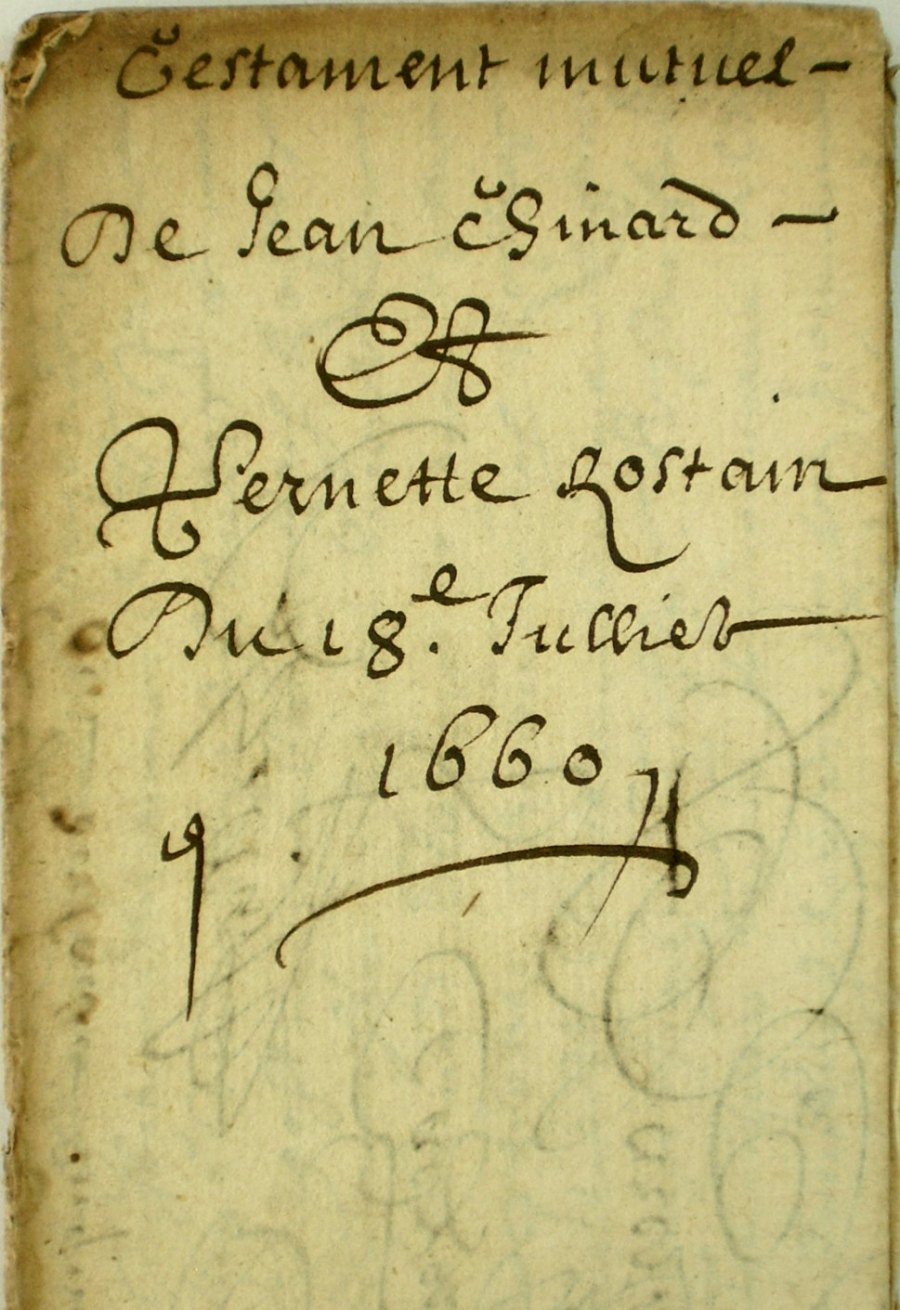 Testament mutuel -
De Jean Chinard -
Et
Pernette Rostain
Du 18.e Julliet
1660